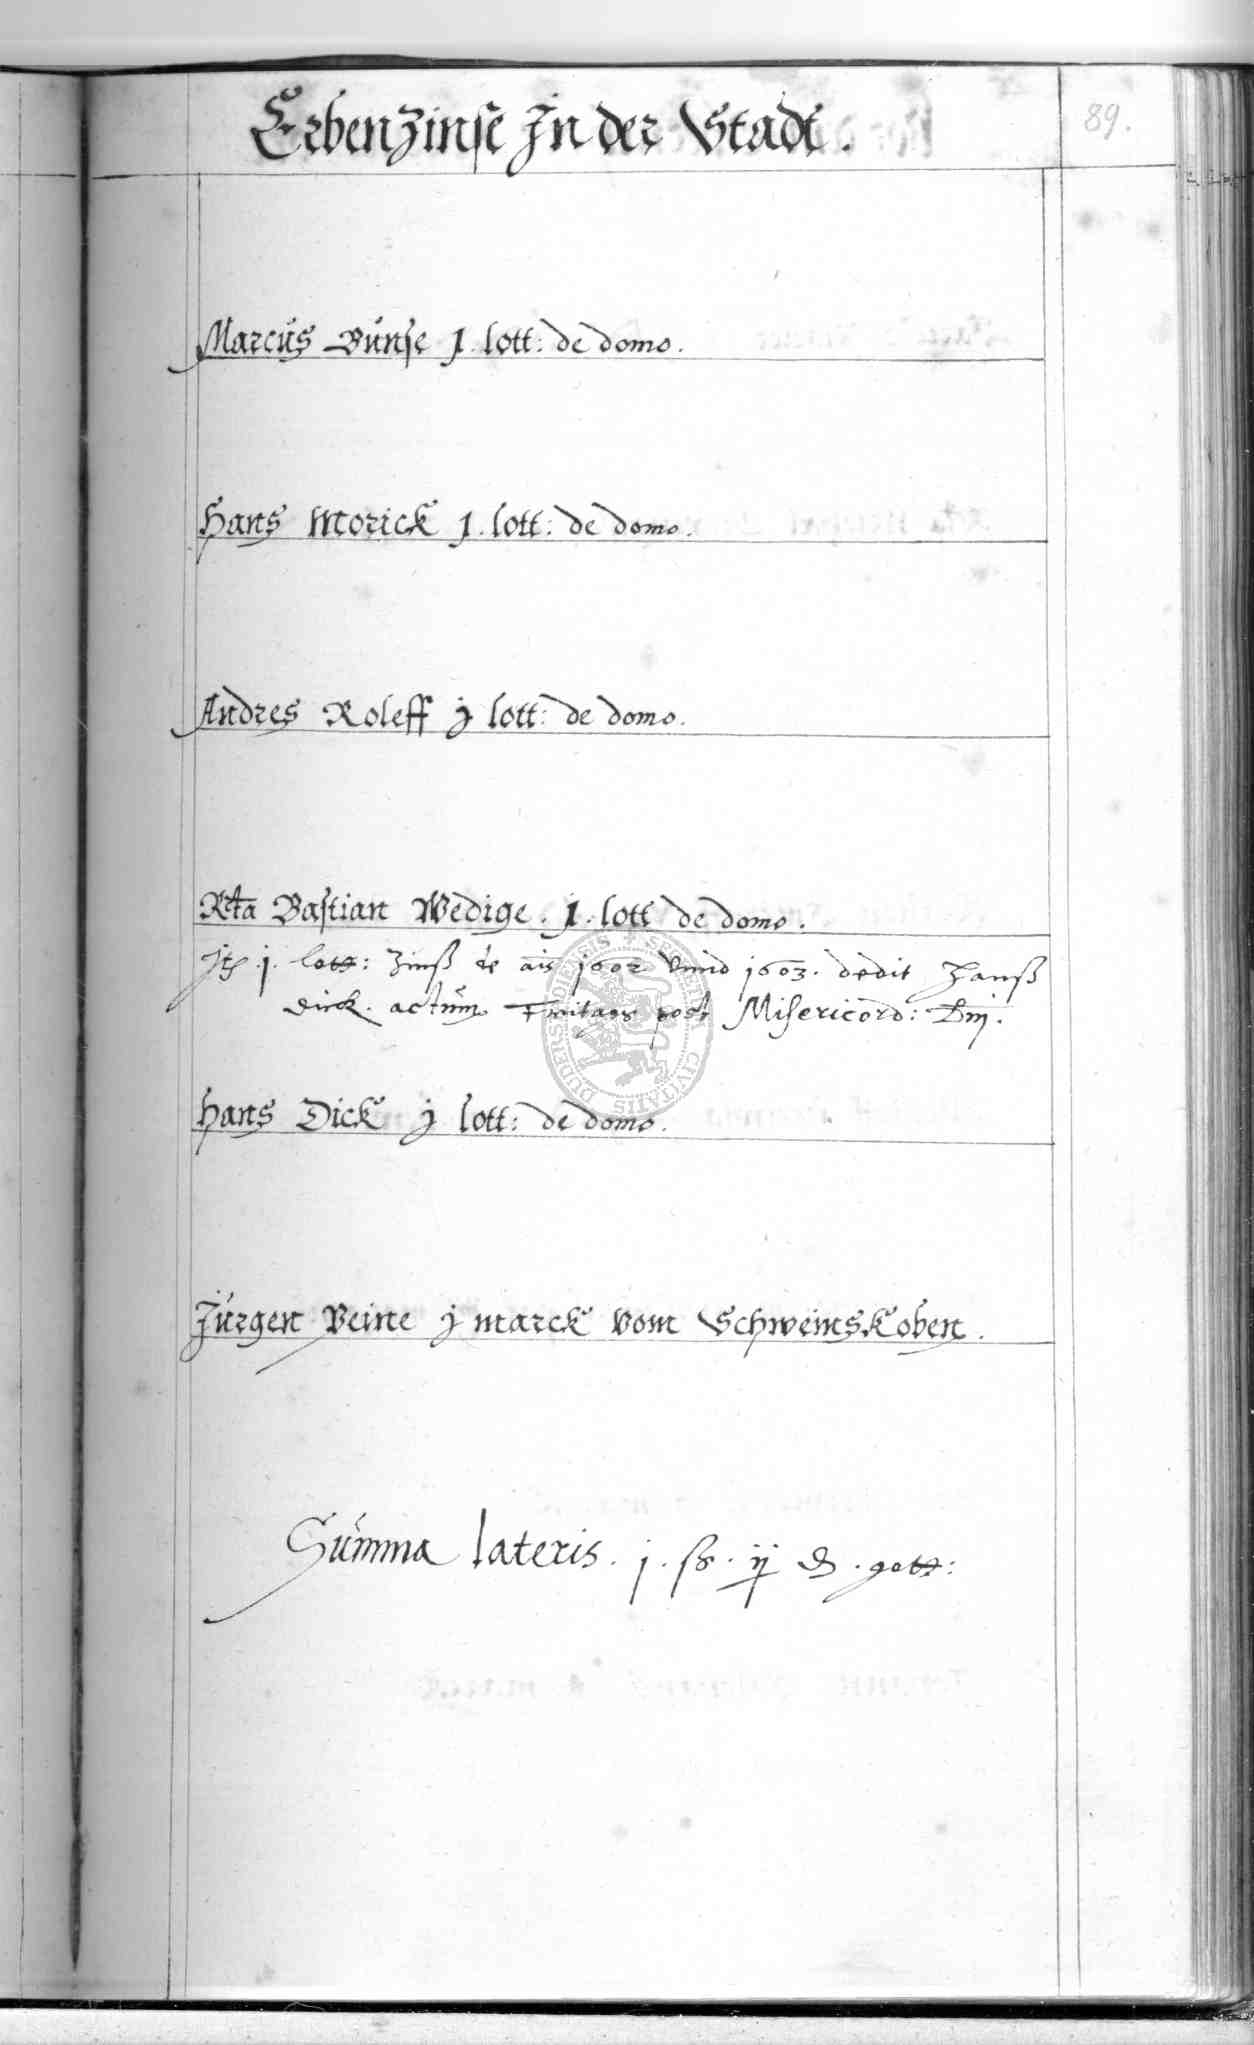 Erbenzinse In der Stadt.
89.
Marcus Bunse 1. lott: de domo.
Hans Morick 1. lott: de domo.
Andres Roleff j lott: de domo.
Rcta Bastian Wedige. 1. lott de domo.
Jt. j. lott: Zinß de ais 1602 vnnd 1603. dedit Hanß
Dick. actum Freitags post Misericord: Dni.
Hans Dick j lott: de domo.
Jürgen Peine j marck vom Schweinskoben.
Summa lateris. j. ß. ij ₰. gott:
SECRETUM CIVITATIS DUDERSTADIENSIS